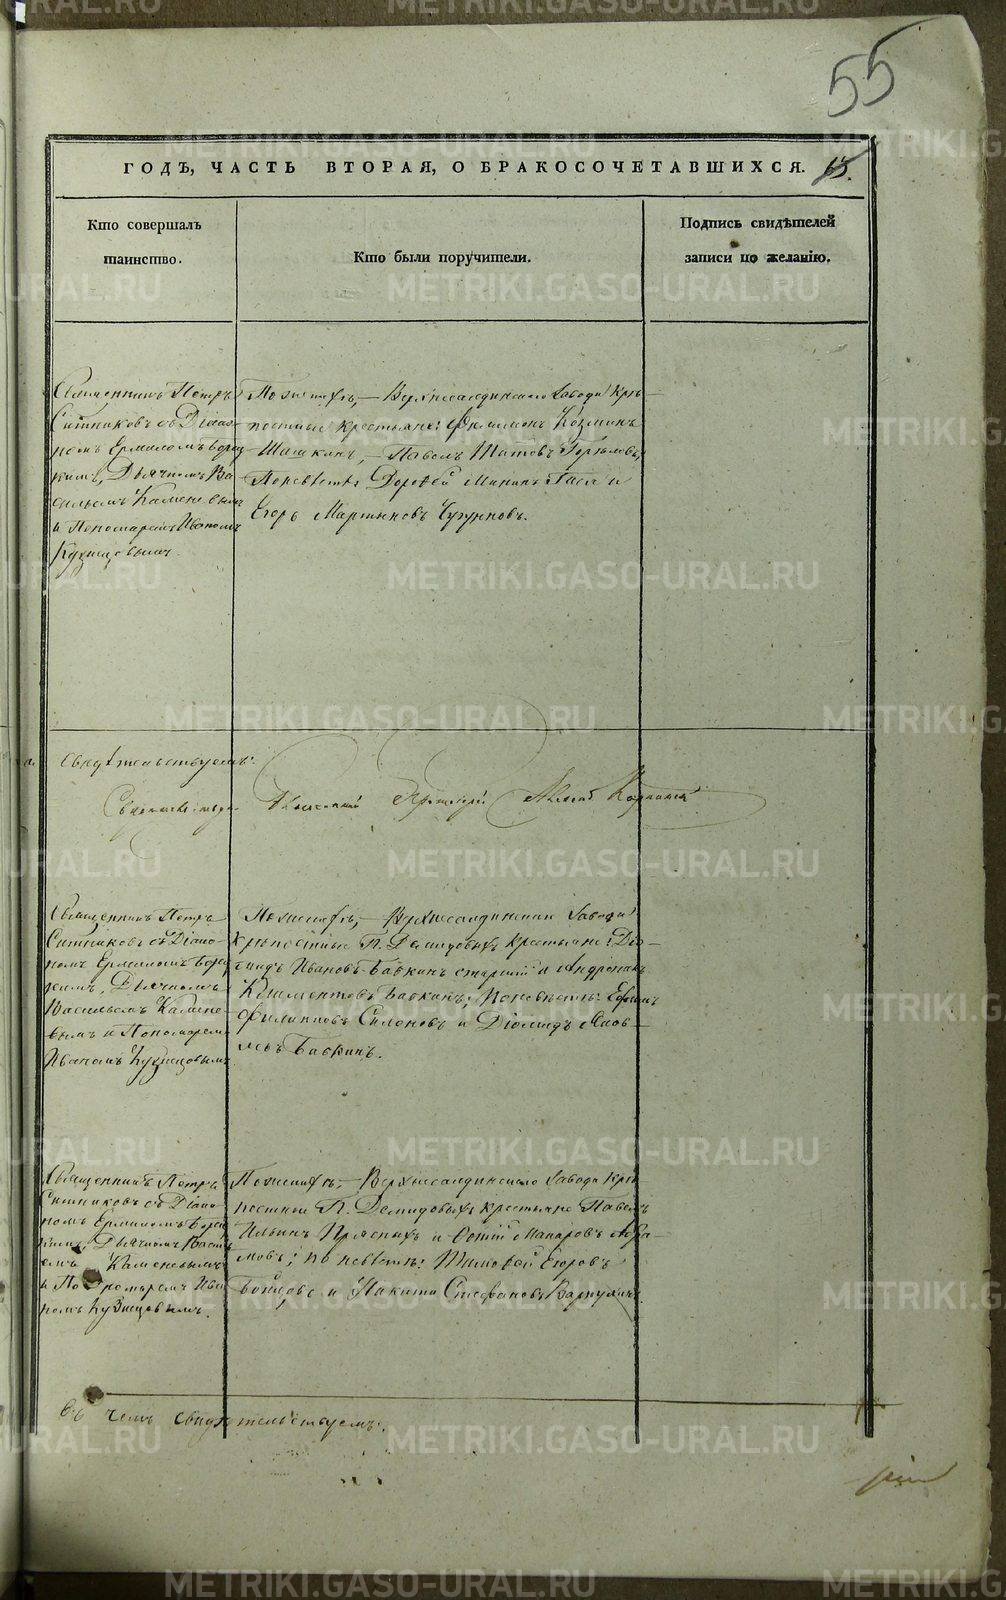 55
ГОДЪ, ЧАСТЬ ВТОРАЯ, О БРАКОСОЧЕТАВШИХСЯ.
Кто совершалъ
таинство.
Кто были поручители.
Подпись свидѣтелей
записи по желанію.
Священникъ Петръ
Ситниковъ съ Діако-
номъ Ермиломъ
Дьячкомъ Ва-
сильемъ Каменевымъ
и Пономаремъ Иваномъ
Кузнецовымъ.
По женихѣ, — Верхнесалдинскаго завода крѣ-
постные крестьяне: Филимонъ Козминъ
Шашкинъ, — Павелъ Титовъ
По невѣстѣ: Дорофей Мининъ и
Егоръ Мартыновъ Чугунковъ.
свидѣтельствуемъ:
Священникъ Петръ
Ситниковъ съ Діако-
номъ Ермиломъ
Дьячкомъ
Васильемъ Камене-
вымъ и Пономаремъ
Иваномъ Кузнецовымъ
По женихѣ, — Верхнесалдинскаго завода
крѣпостные Г. Демидовыхъ крестьяне: Діо-
мидъ Ивановъ Бабкинъ старшій и Андроникъ
Климентовъ Бабкинъ; по невѣстѣ: Ефимъ
Филипповъ и Діомидъ Яков-
левъ Бабкинъ.
Священникъ Петръ
Ситниковъ съ Діако-
номъ Ермиломъ
Дьячкомъ Василь-
емъ Каменевымъ
и Пономаремъ Ива-
номъ Кузнецовымъ.
По женихѣ, — Верхнесалдинскаго завода крѣ-
постные Г. Демидовыхъ крестьяне Павелъ
Ильинъ и Макаровъ Авра-
мовъ; по невѣстѣ: Тимофей Егоровъ
и Никита Стефановъ
Въ чемъ свидѣтельствуемъ:
METRIKI.GASO-URAL.RU